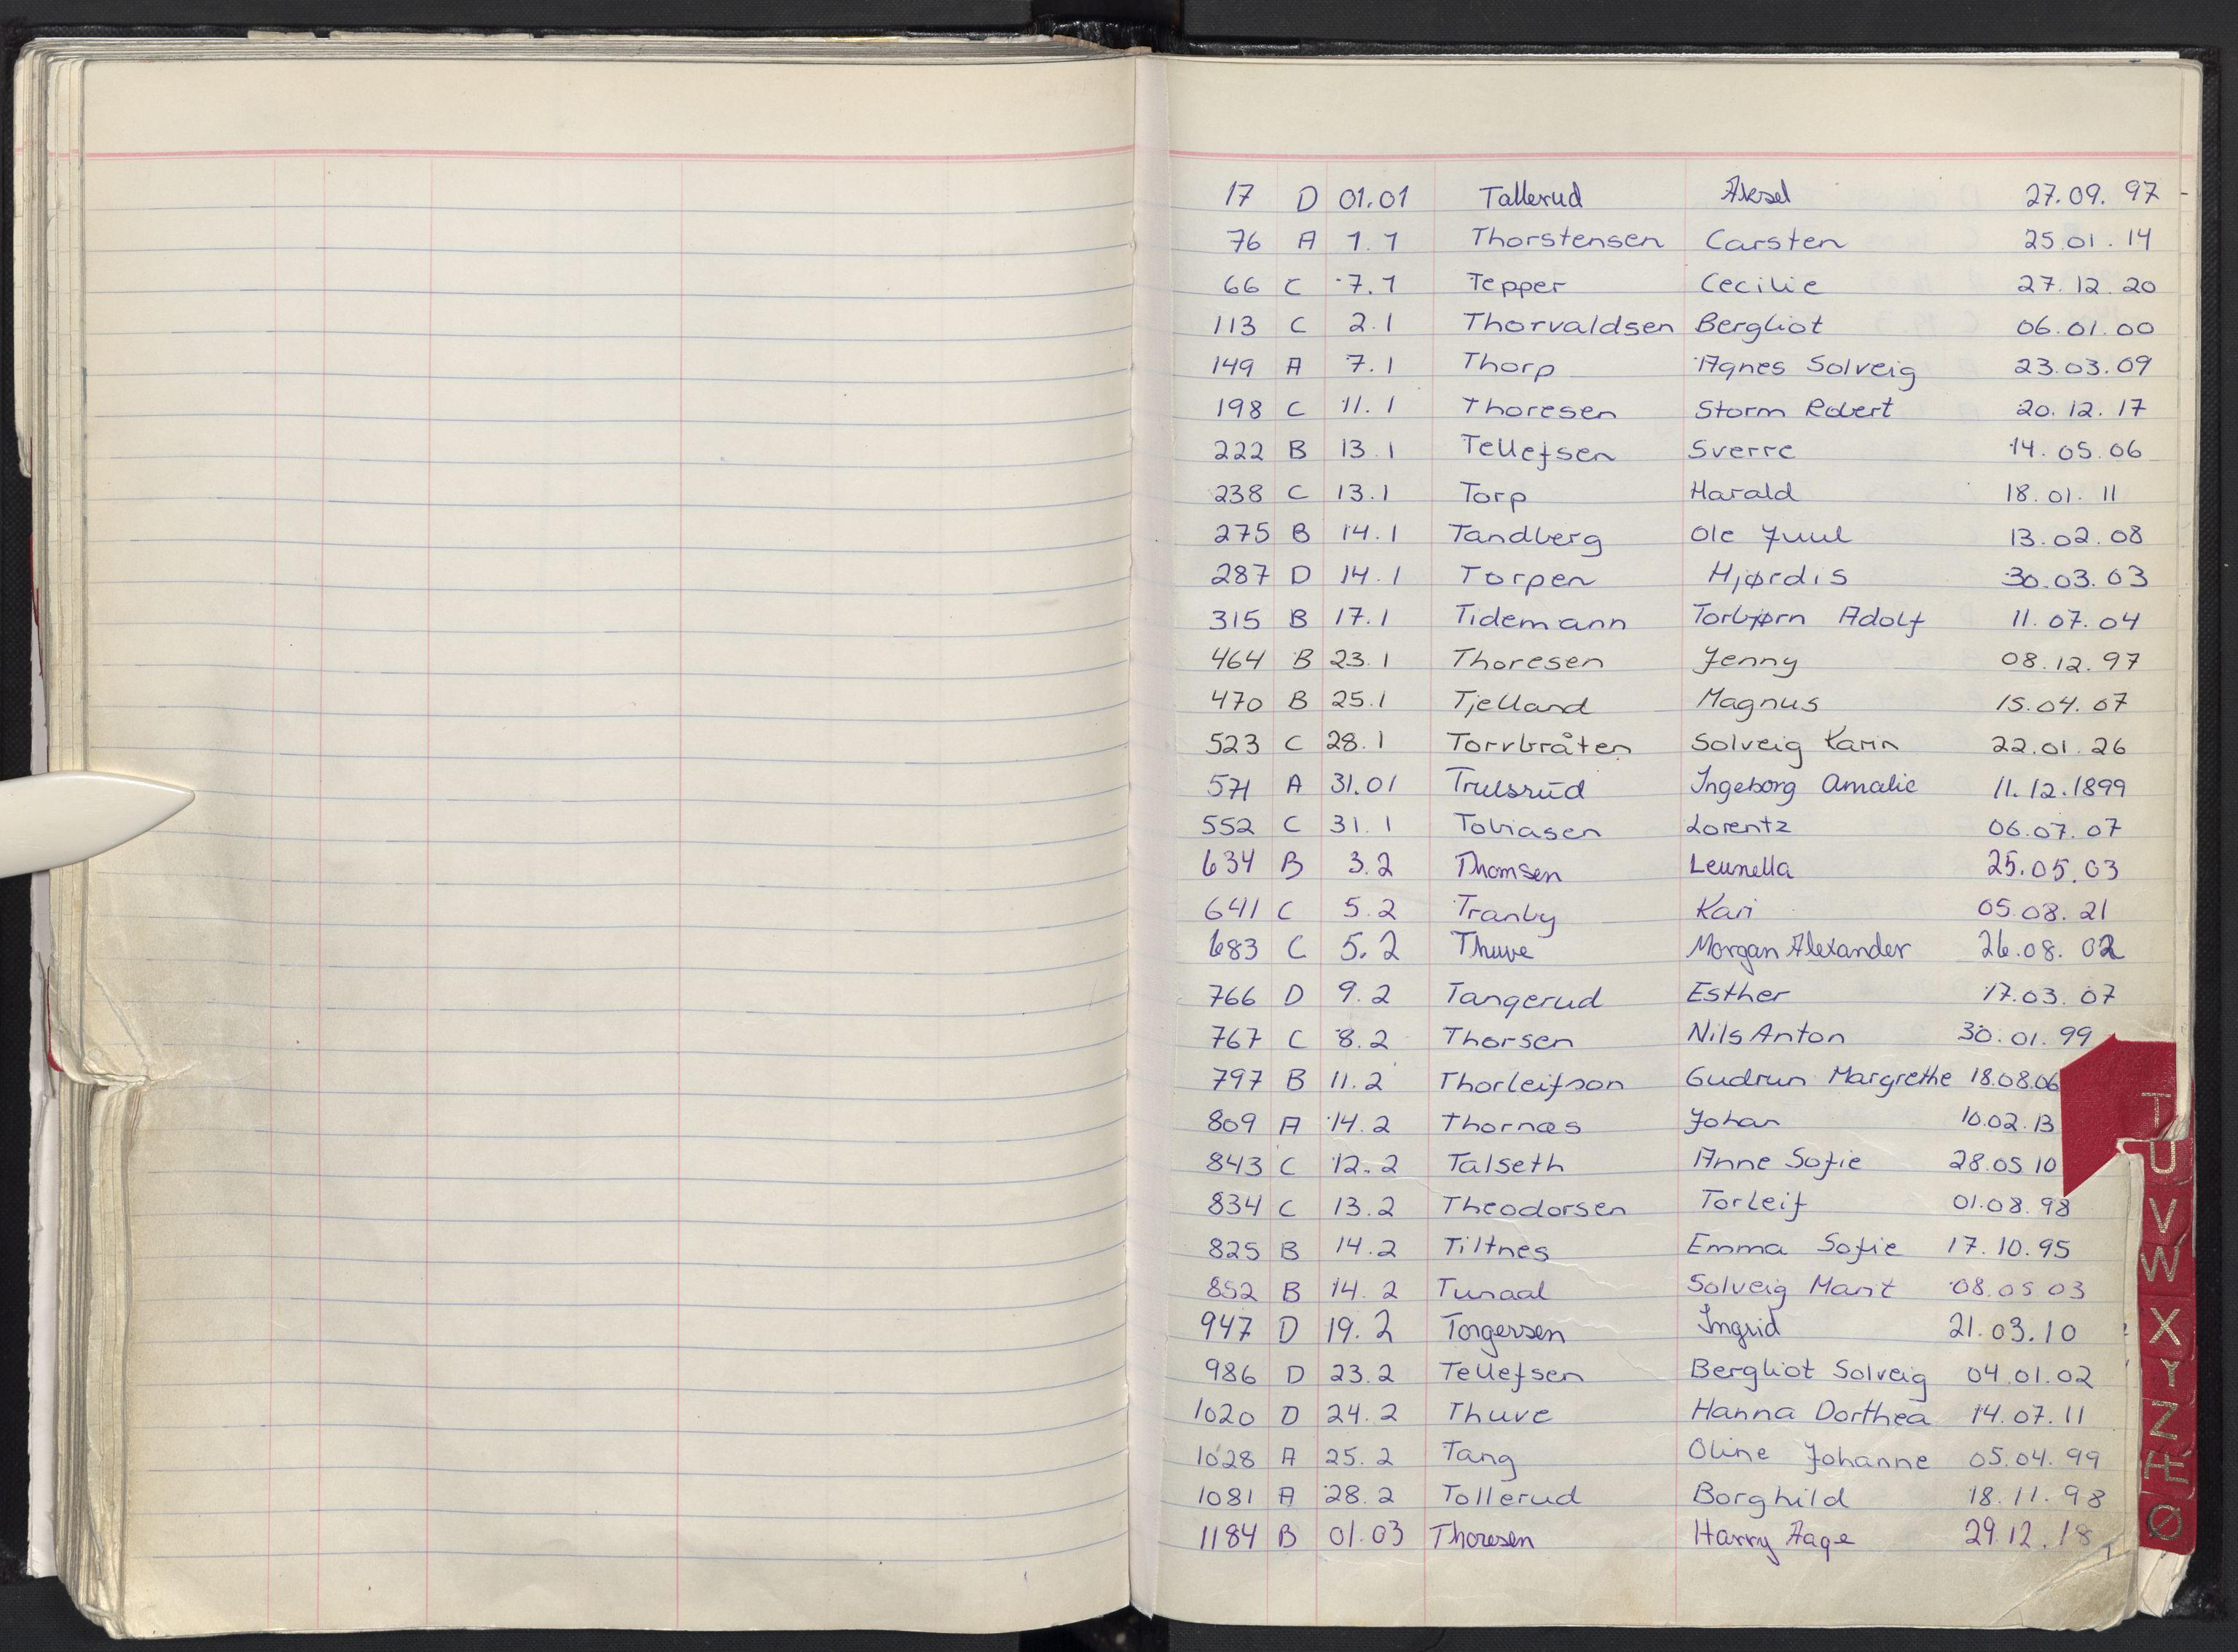 17 D 01.01 Tallerud Aksel 27.09.97
76 A 1.1 Thorstensen Carsten 25.01.14
66 C 7.1 Tepper Cecilie 27.12.20
113 C 2.1 Thorvaldsen Bergliot 06.01.00
149 A 7.1 Thorp Agnes Solveig 23.03.09
198 C 11.1 Thoresen Storm Robert 20.12.17
222 B 13.1 Tellefsen Sverre 14.05.06
238 C 13.1 Torp Harald 18.01.11
275 B 14.1 Tandberg Ole Juul 13.02.08
287 D 14.1 Torpen Hjørdis 30.03.03
315 B 17.1 Tidemann Torbjørn Adolf 11.07.04
464 B 23.1 Thoresen Jenny 08.12.97
470 B 25.1 Tjelland Magnus 15.04.07
523 C 28.1 Torvbråten Solveig Karin 22.01.26
571 A 31.01 Trulsrud Ingeborg Amalie 11.12.1899
552 C 31.1 Tobiasen Lorentz 06.07.07
634 B 3.2 Thomsen Leunella 25.05.03
641 C 5.2 Tranby Kari 05.08.21
683 C 5.2 Thuve Morgan Alexander 26.08.02
766 D 9.2 Tangerud Esther 17.03.07
767 C 8.2 Thorsen Nils Anton 30.01.99
797 B 11.2 Thorleifson Gudrun Margrethe 18.08.06
809 A 14.2 Thornæs Johan 10.02.13
843 C 12.2 Talseth Anne Sofie 28.05 10
834 C 13.2 Theodorsen Torleif 01.08.98
825 B 14.2 Tiltnes Emma Sofie 17.10.95
852 B 14.2 Tunaal Solveig Marit 08.05 03
947 D 19.2 Torgersen Ingrid 21.03.10
986 D 23.2 Tellefsen Bergliot Solveig 04.01.02
1020 D 24.2 Thuve Hanna Dorthea 14.07.11
1028 A 25.2 Tang Oline Johanne 05.04.99
1081 A 28.2 Tollerud Borghild 18.11.98
1184 B 01.03 Thoresen Harry Aage 29.12.18
T
U
V
W
X
Y
Z
Æ
Ø